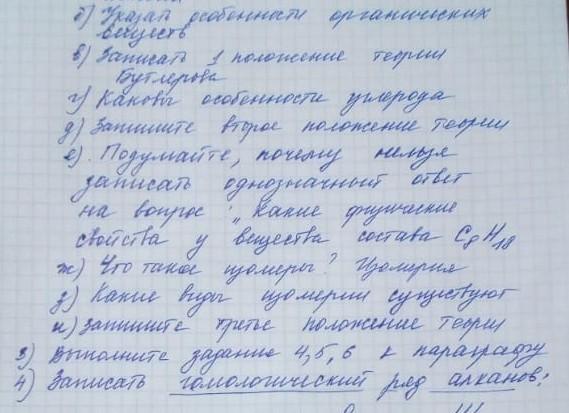 б) Указать особенности органических
веществ
в) Записать 1 положение теории
Бутлерова
г) Каковы особенности углерода
д) Запишите второе положение теории
е). Подумайте, почему нельзя
записать однозначный ответ
на вопрос: „Какие физические
свойства у вещества состава C8H18
ж) Что такое изомеры? Изомерия
з) Какие виды изомерии существуют
и) Запишите третье положение теории
3) Выполните задание 4,5,6 к параграфу
4) Записать гомологический ряд алканов: